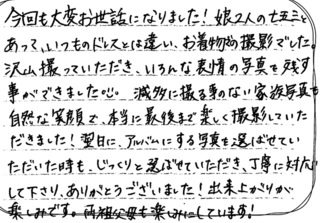 今回も大変お世話になりました！娘2人の七五三と
あって、いつものドレスとは違い、お着物の撮影でした。
沢山撮っていただき、いろんな表情の写真を残す
事ができました。滅多に撮る事のない家族写真も
自然な笑顔で、本当に最後まで楽しく撮影していた
だきました！翌日に、アルバムにする写真を選ばせてい
ただいた時も、じっくりと選ばせていただき、丁寧に対応
して下さり、ありがとうございました！出来上がりが
楽しみです。両祖父母も楽しみにしています！